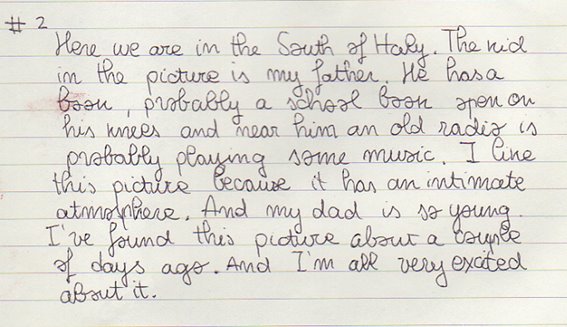 # 2
Here we are in the South of Italy. The kid
in the picture is my father. He has a
book, probably a school book open on
his knees and near him an old radio is
probably playing some music. I like
this picture because it has an intimate
atmosphere. And my dad is so young.
I've found this picture about a couple
of days ago. And I'm all very excited
about it.